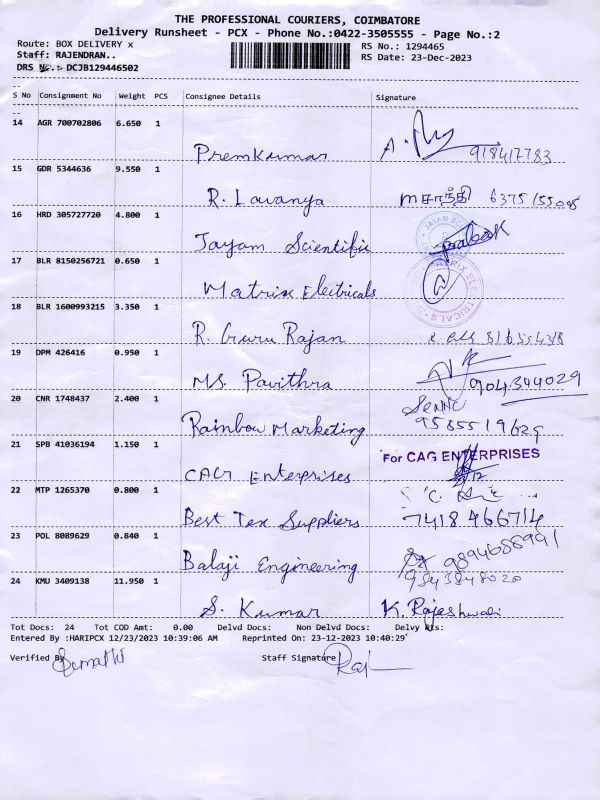 THE PROFESSIONAL COURIERS, COIMBATORE
Delivery Runsheet - PCX - Phone No.:0422-3505555 - Page No.:2
Route: BOX DELIVERY x RS No.: 1294465
Staff: RAJENDRAN.. RS Date: 23-Dec-2023
DRS No.:- DCJB129446502
S No Consignment No Weight PCS Consignee Details Signature
14 AGR 700702806 6.650 1
Premkumar 918417783
15 GDR 5344636 9.550 1
R. Lavanya சாந்தி
16 HRD 305727720 4.800 1 JAYAM
Jayam Scientific Prabak
17 BLR 8150256721 0.650 1
Matrix Electricals MATRIX ELECTRICALS
18 BLR 1600993215 3.350 1
R. Guru Rajan
19 DPM 426416 0.950 1
MS. Pavithra 904344029
20 CNR 1748437 2.400 1
Rainbow Marketing 9585519629
21 SPB 41036194 1.150 1 For CAG ENTERPRISES
CAG Enterprises
22 MTP 1265370 0.800 1
Best Tex Suppliers 7418466714
23 POL 8089629 0.840 1
Balaji Engineering 9894688991
9843848020
24 KMU 3409138 11.950 1
S. Kumar K. Rajeshwari
Tot Docs: 24 Tot COD Amt: 0.00 Delvd Docs: Non Delvd Docs: Delvy Hts:
Entered By :HARIPCX 12/23/2023 10:39:06 AM Reprinted On: 23-12-2023 10:40:29
Verified By Staff Signature Raj